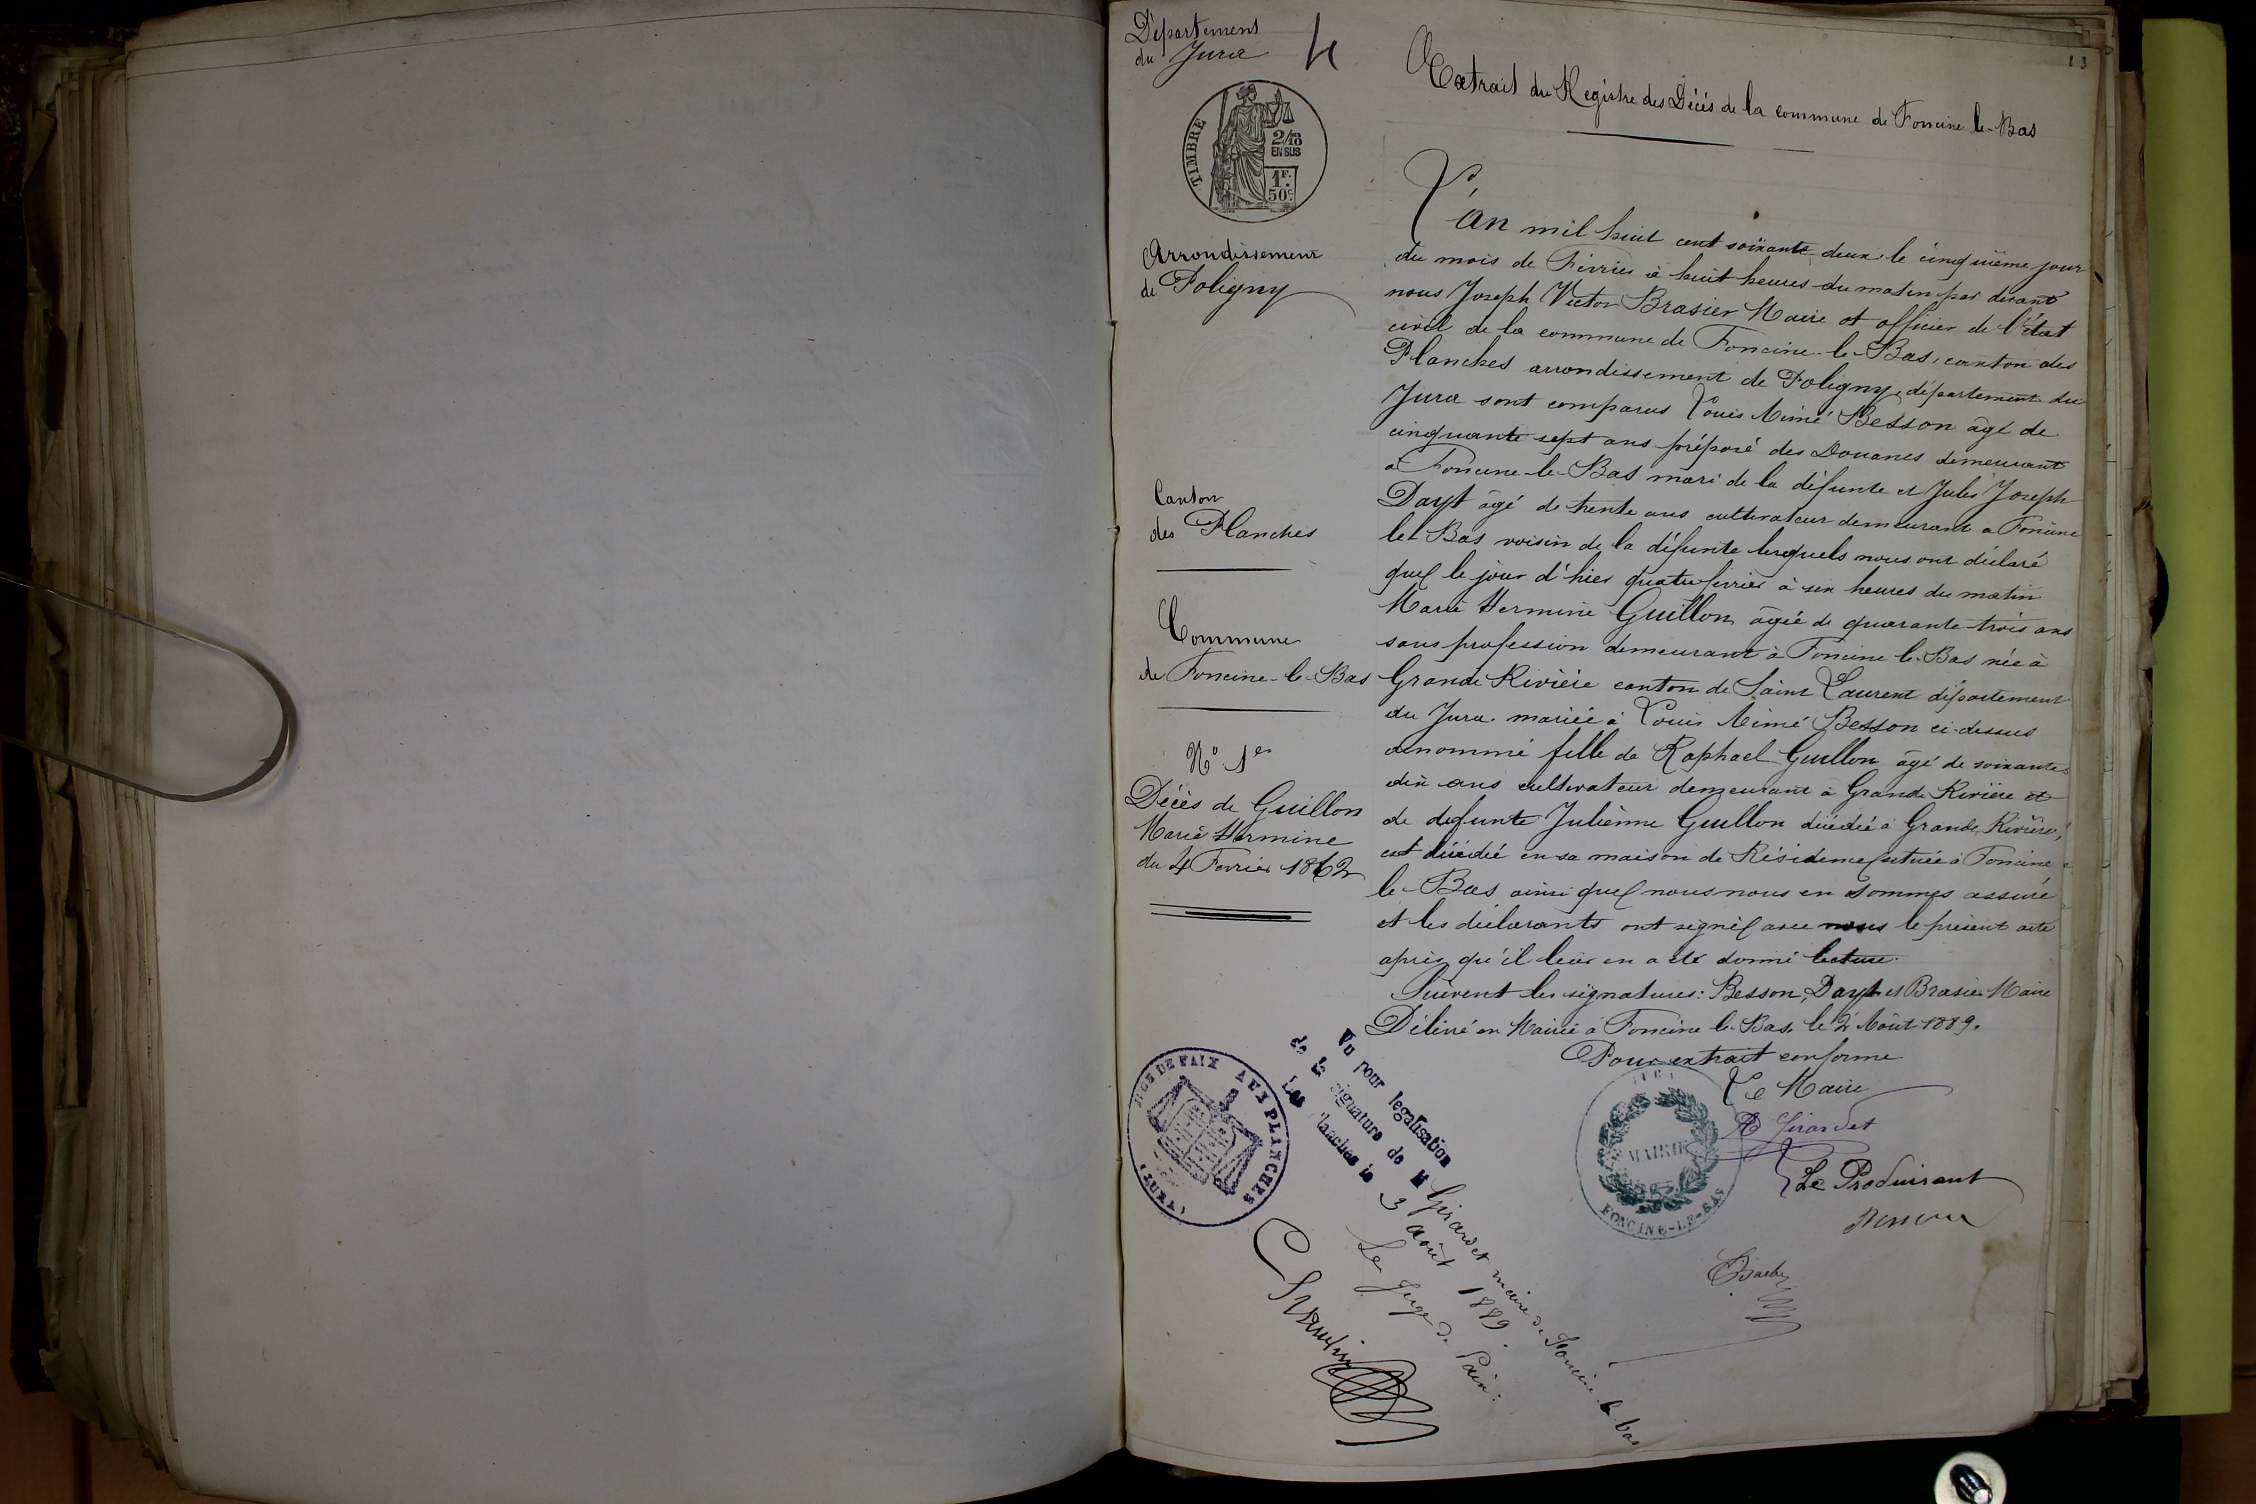 Département
du Jura
4
23
Extrait du Registre des Décès de la commune de Foncine le-Bas
TIMBRE
2/10
EN SUS
1F.
50c.
Arrondissement
de Poligny
Canton
des Planches
Commune
de Foncine-le-Bas
No 1er
Décès de Guillon
Marie Hermine
du 4 Fevrier 1862
L'an mil huit cent soixante deux le cinquième jour
du mois de Février à huit heures du matin par devant
nous Joseph Victor Brasier Maire et officier de l'état
civil de la commune de Foncine-le-Bas, canton des
Planches arrondissement de Poligny, département du
Jura sont comparus Louis Aimé Besson âgé de
cinquante sept ans préposé des Douanes demeurant
à Foncine-le-Bas mari de la défunte et Jules Joseph
Dayt âgé de trente ans cultivateur demeurant a Foncine
le-Bas voisin de la défunte lesquels nous ont déclaré
que le jour d'hier quatre février à six heures du matin
Marie Hermine Guillon, âgée de quarante trois ans
sans profession demeurant à Foncine le-Bas née à
Grande Rivière canton de Saint Laurent département
du Jura. mariée à Louis Aimé Besson ci-dessus
dénommé fille de Raphael Guillon âgé de soixante
dix ans cultivateur demeurant à Grande Rivière et
de defunte Julienne Guillon décédée à Grande Rivière,
est décédée en sa maison de Résidence située à Foncine
le-Bas ainsi que nous nous en sommes assuré
et les déclarants ont signé avec nous le présent acte
après qu'il leur en a été donné lecture.
Suivent les signatures: Besson, Dayt et Brasier Maire
Délivré en Mairie à Foncine le-Bas, le 2 Août 1889.
Pour extrait conforme
Le Maire
Girardet
Le Produisant
MAIRIE
FONCINE-LE-BAS
JUGE DE PAIX AUX PLANCHES
(JURA)
Vu pour légalisation
de la signature de M Girardet maire de Foncine le bas
Les Planches le 3 août 1889.
Le Juge de Paix: